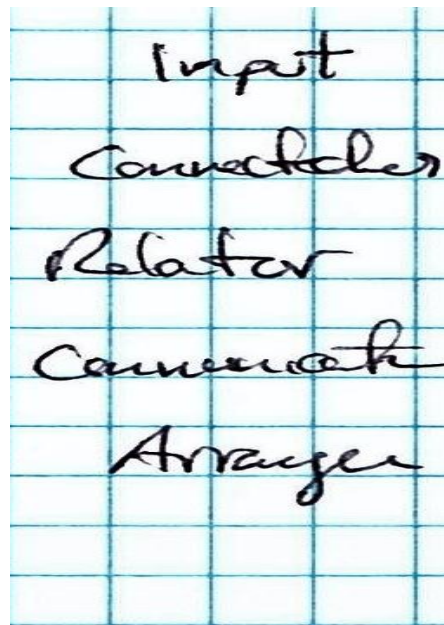 Input
Connectedness
Relator
Communicate
Arranger